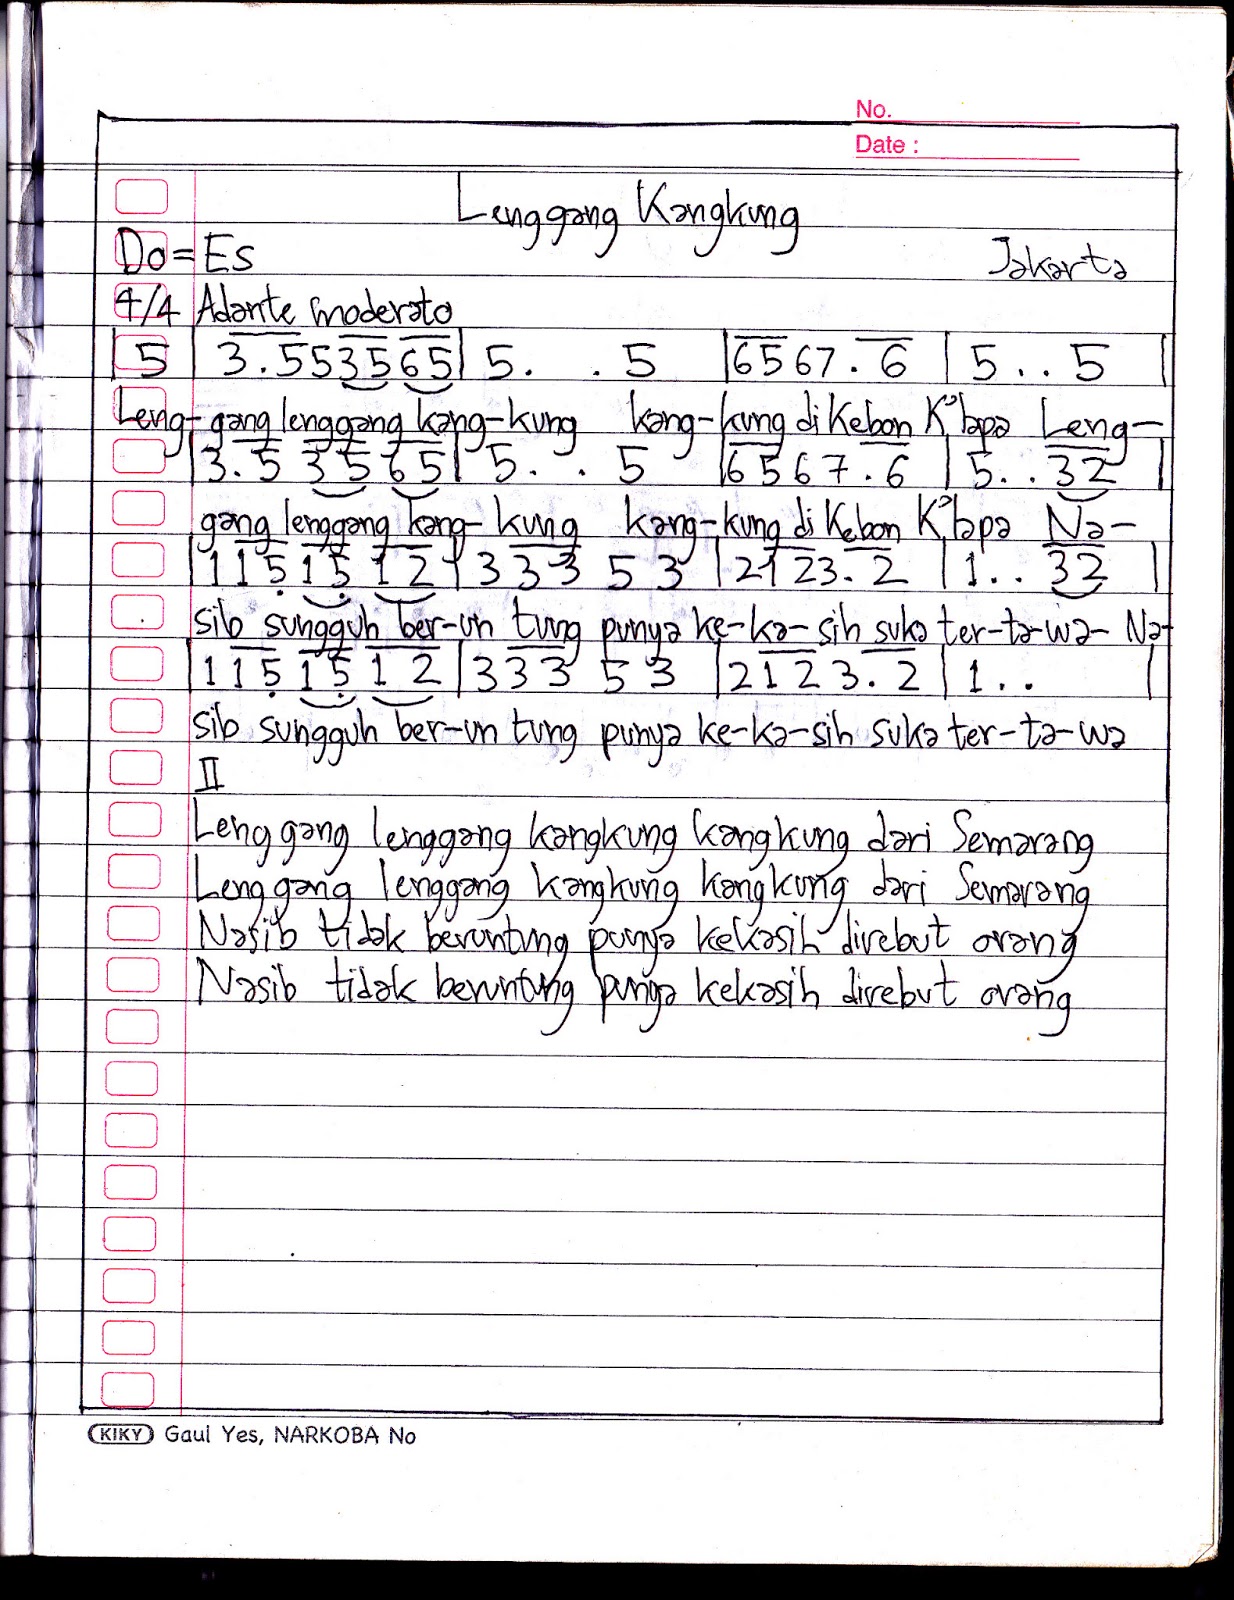 No.
Date :
Lenggang Kangkung
Do = Es
Jakarta
4/4 Adante moderato
| 5 | 3 . 5 5 3 5 6 5 | 5 . . 5 | 6 5 6 7 . 6 | 5 . . 5 |
Leng- gang lenggang kang-kung kang-kung di Kebon K'lapa Leng-
| 3 . 5 3 5 6 5 | 5 . . 5 | 6 5 6 7 . 6 | 5 . . 3 2 |
gang lenggang kang-kung kang-kung di Kebon K'lapa Na-
| 1 1 5̣ 1 5̣ 1 2 | 3 3 3 5 3 | 2 1 2 3 . 2 | 1 . . 3 2 |
sib sungguh ber-un tung punya ke-ka-sih suka ter-ta-wa- Na-
| 1 1 5̣ 1 5̣ 1 2 | 3 3 3 5 3 | 2 1 2 3 . 2 | 1 . . |
sib sungguh ber-un tung punya ke-ka-sih suka ter-ta-wa
II
Lenggang lenggang kangkung kangkung dari Semarang
Lenggang lenggang kangkung kangkung dari Semarang
Nasib tidak beruntung punya kekasih direbut orang
Nasib tidak beruntung punya kekasih direbut orang
KIKY Gaul Yes, NARKOBA No